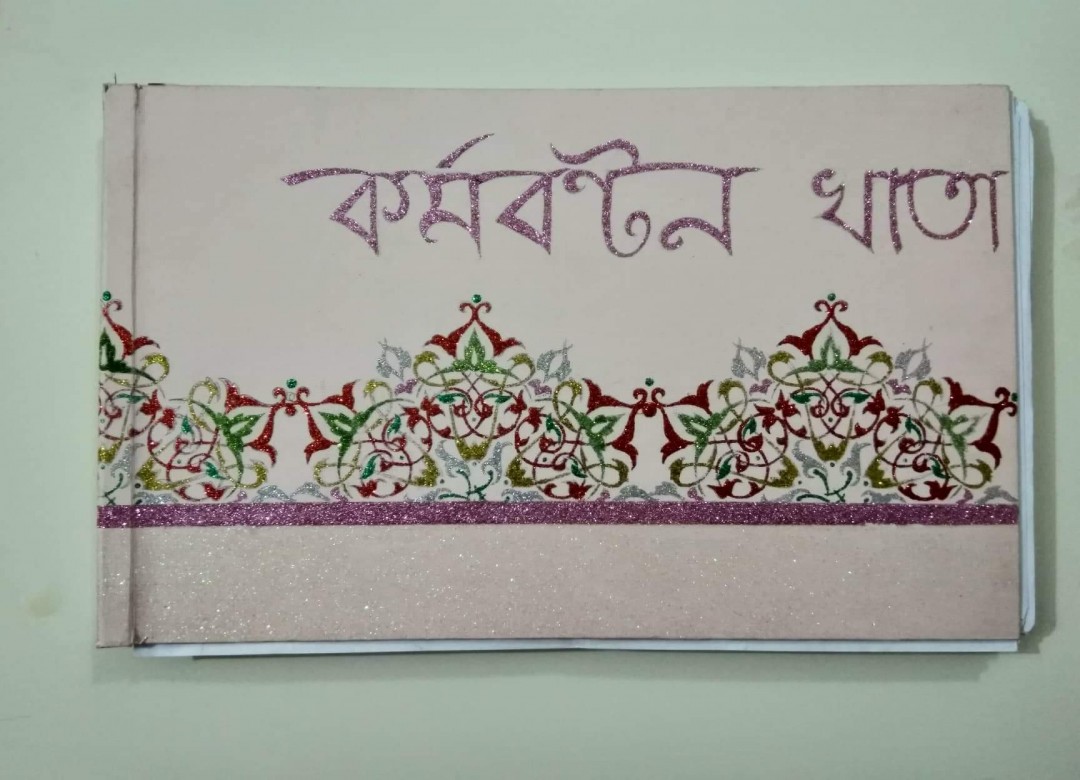 কর্মবণ্টন খাতা